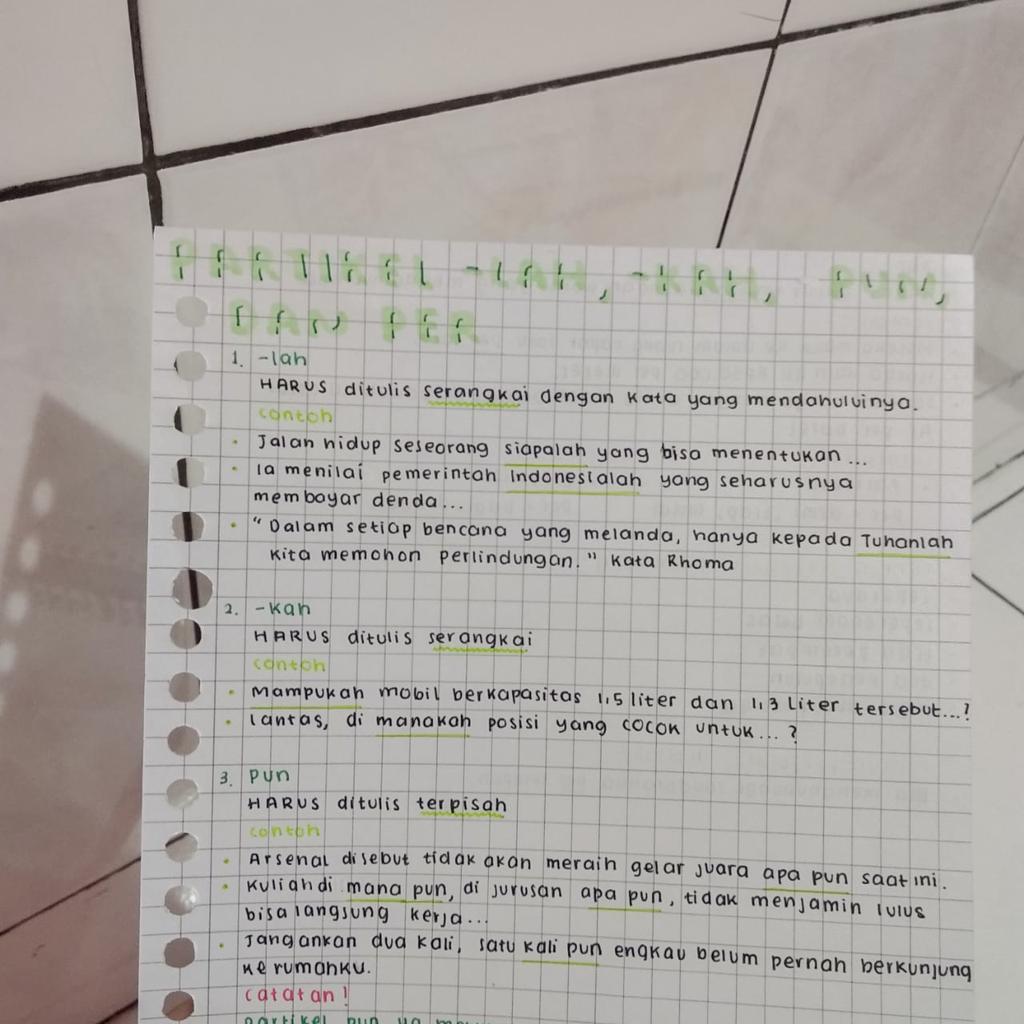 PARTIKEL -LAH, -KAH, PUN,
DAN PER
1. -lah
HARUS ditulis serangkai dengan kata yang mendahuluinya.
contoh
• Jalan hidup seseorang siapalah yang bisa menentukan ...
• Ia menilai pemerintah Indonesialah yang seharusnya
membayar denda...
• "Dalam setiap bencana yang melanda, hanya kepada Tuhanlah
kita memohon perlindungan." kata Rhoma
2. -kah
HARUS ditulis serangkai
contoh
• Mampukah mobil berkapasitas 1,5 liter dan 1,3 liter tersebut...?
• lantas, di manakah posisi yang cocok untuk... ?
3. pun
HARUS ditulis terpisah
contoh
• Arsenal disebut tidak akan meraih gelar juara apa pun saat ini.
• Kuliah di mana pun, di jurusan apa pun, tidak menjamin lulus
bisa langsung kerja...
• Jangankan dua kali, satu kali pun engkau belum pernah berkunjung
ke rumahku.
catatan!
partikel pun yg